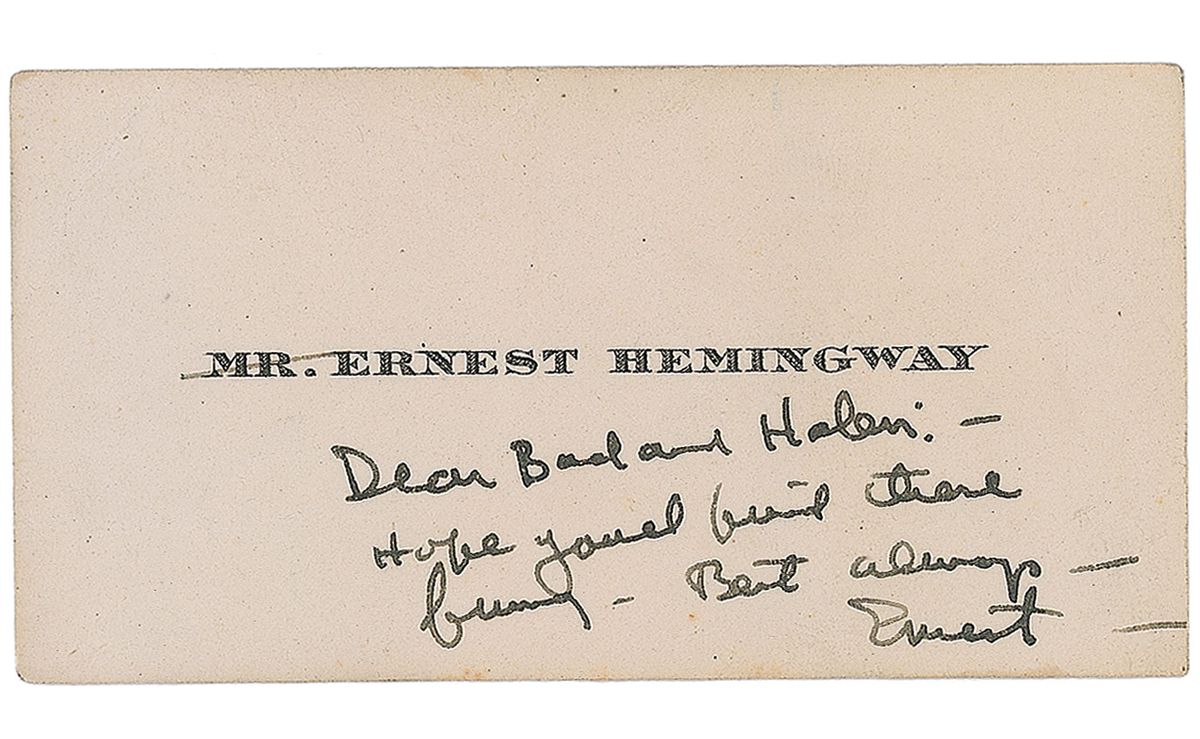 MR. ERNEST HEMINGWAY
Dear Bud and Helen: —
Hope youll find these
funny - Best always —
Ernest —